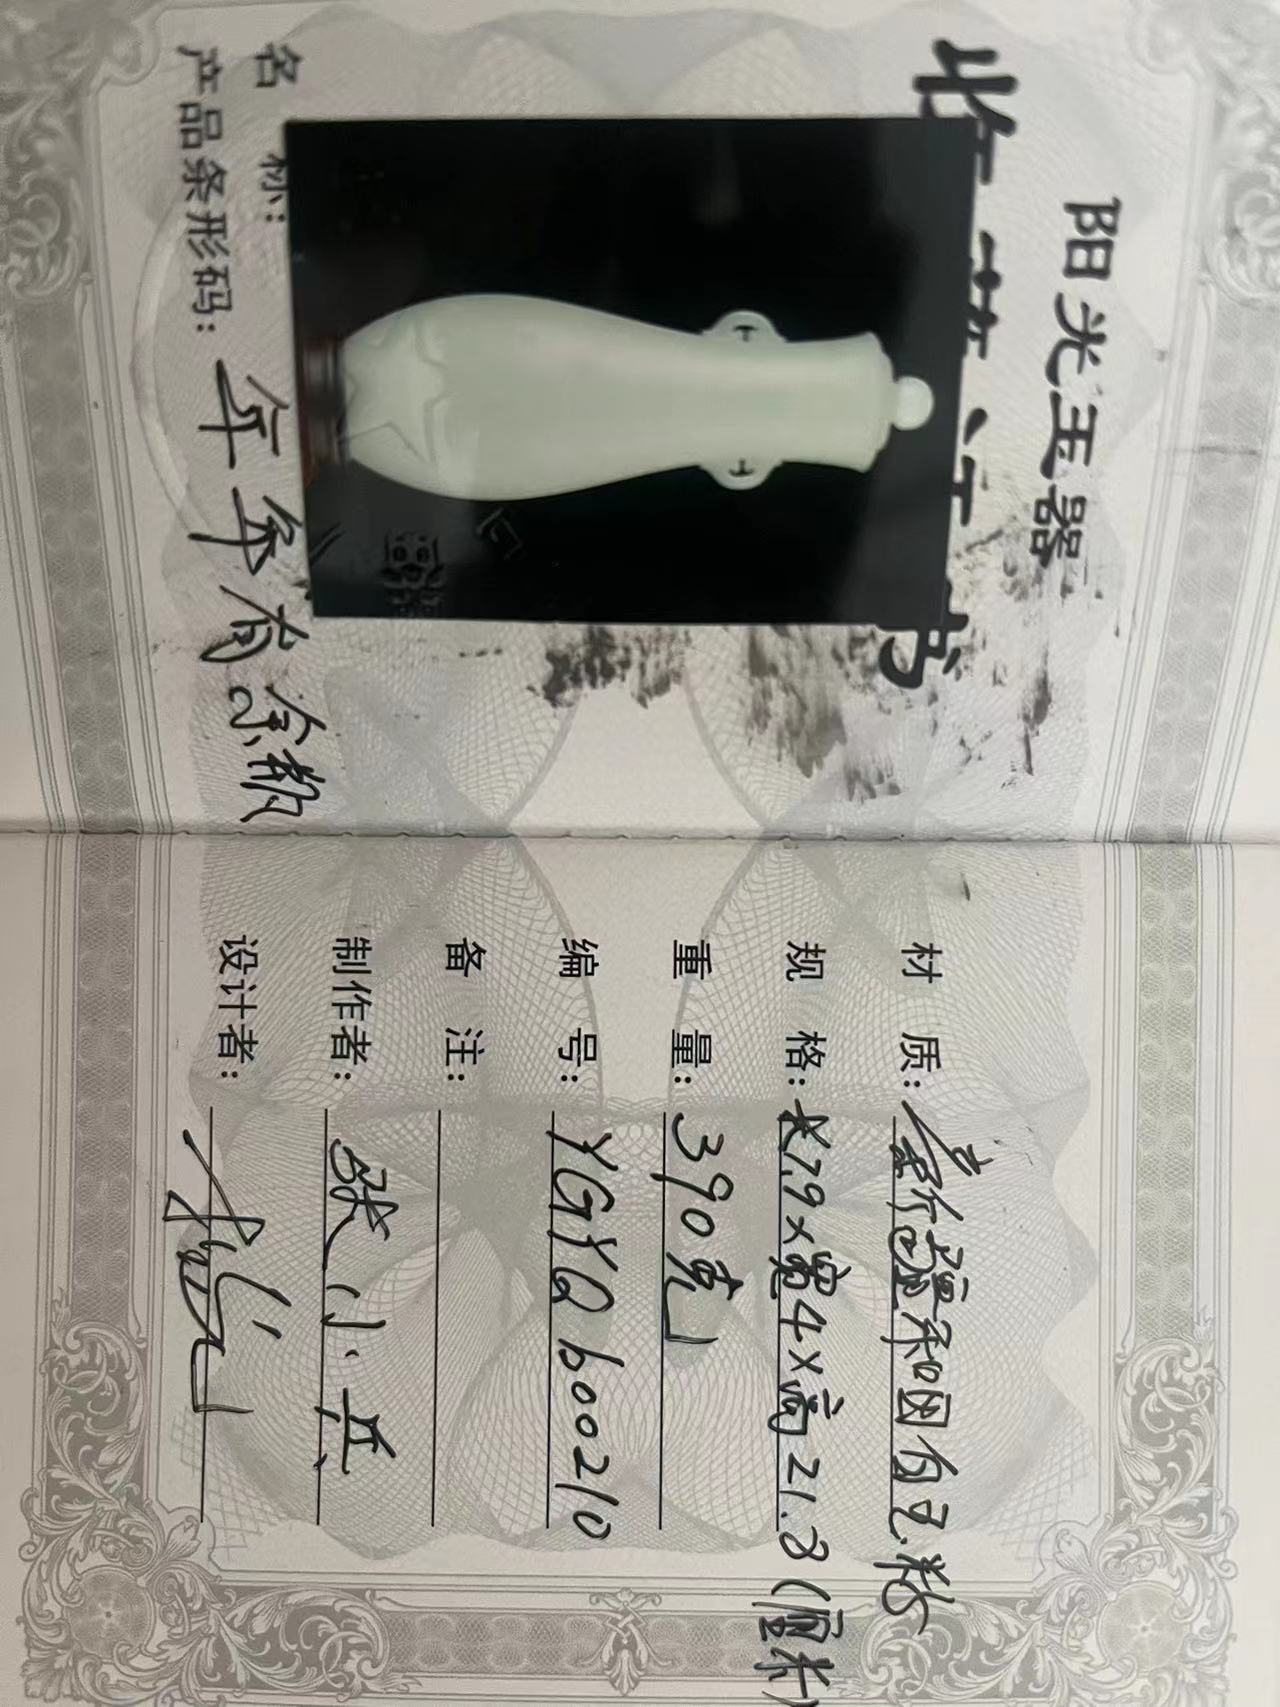 阳光玉器
收藏证书
名 称:
产品条形码: 年年有余瓶
材 质: 新疆和田白玉籽
规 格: 长7.9×宽4×高21.8(厘米)
重 量: 390克
编 号: YGYQ600210
备 注:
制作者: 张小兵
设计者: